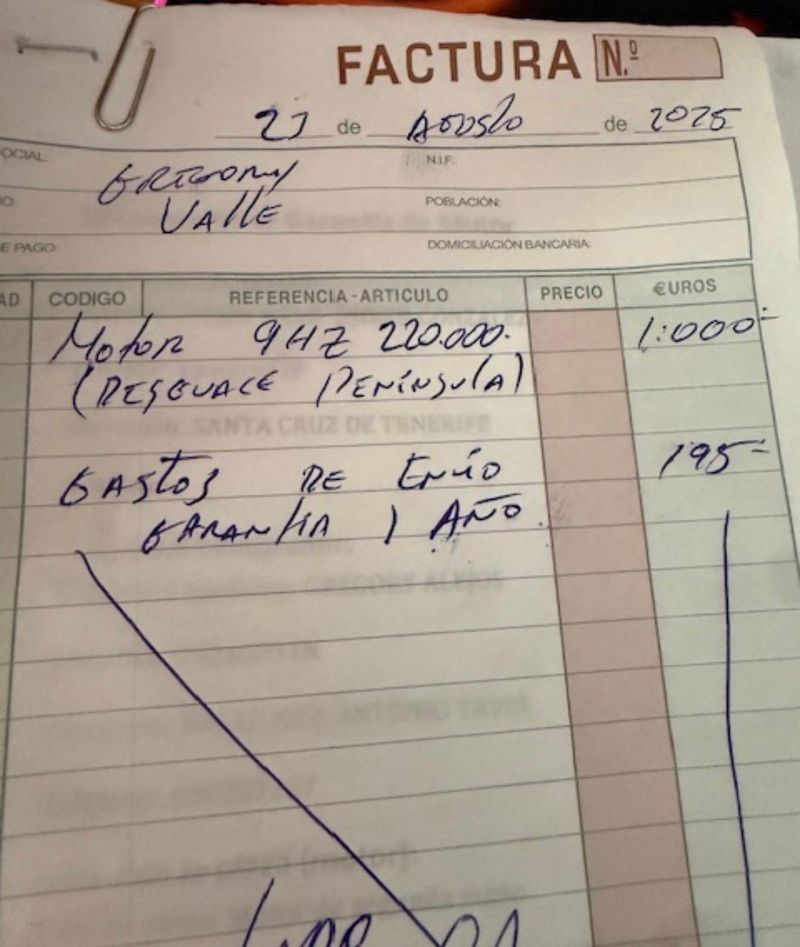 FACTURA N.º
21 de Agosto de 2025
OCIAL: N.I.F.
GREGORY
VALLE
O: POBLACIÓN:
E PAGO: DOMICILIACIÓN BANCARIA:
AD CODIGO REFERENCIA-ARTICULO PRECIO €UROS
Motor 9HZ 220.000. 1:000-
(DESGUACE PENÍNSULA)
SANTA CRUZ DE TENERIFE
GASTOS DE ENVÍO 195-
GARANTIA 1 AÑO